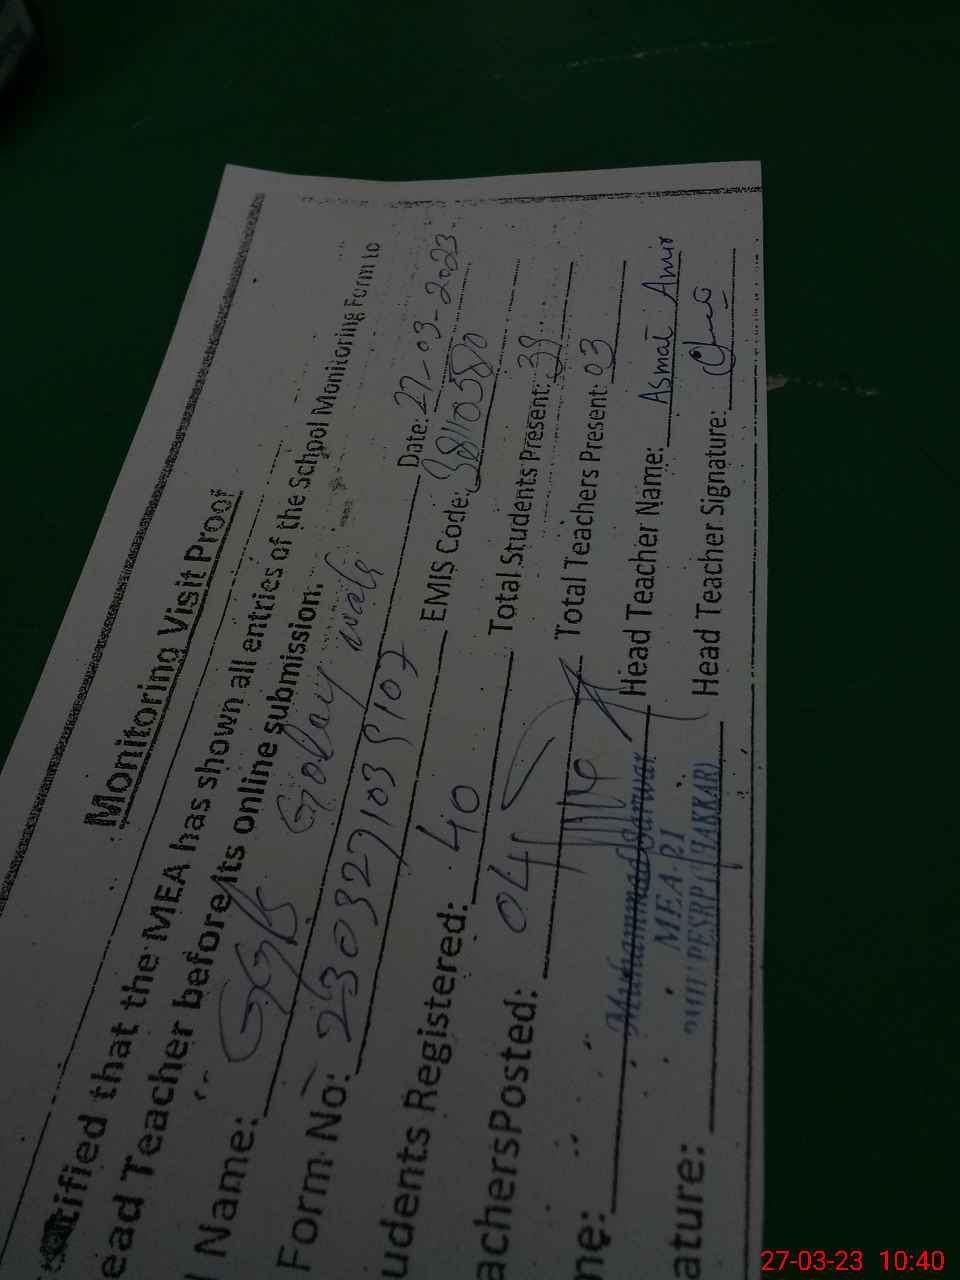 Monitoring Visit Proof
tified that the MEA has shown all entries of the School Monitoring Form to
ead Teacher before its online submission.
Name: GGPS Golay wali Date: 27-03-2023
Form No: EMIS Code: 38110580
udents Registered: 40 Total Students Present: 39
achersPosted: 04 Total Teachers Present: 03
me: Muhammad Sarwar Head Teacher Name: Asmat Amir
MEA-21
PESRP (BHAKKAR)
ature: Head Teacher Signature:
27-03-23 10:40